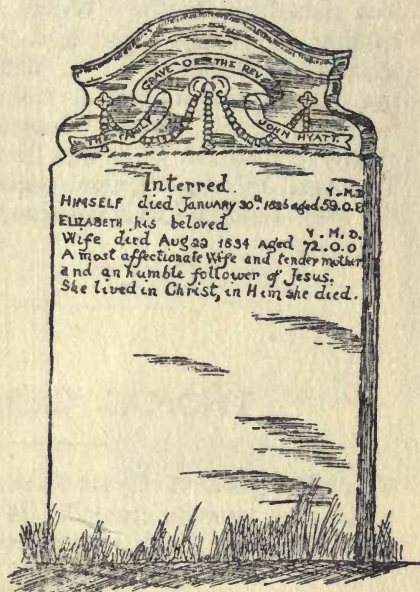 THE FAMILY GRAVE OF THE REVD JOHN HYATT.
Interred.
Y.M.D
HIMSELF died January 30th 1826 aged 59.0.8
ELIZABETH his beloved
Y.M.D.
Wife died Aug 22 1834 aged 72.0.0
A most affectionate Wife and tender mother
and an humble follower of Jesus.
She lived in Christ, in Him she died.